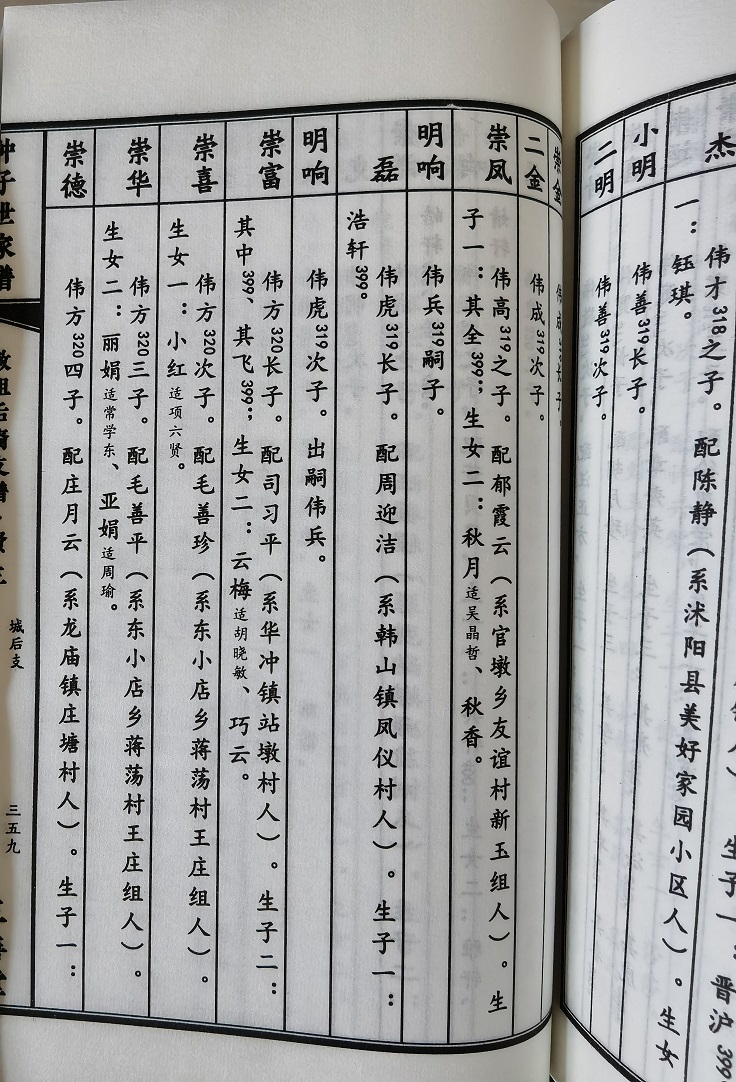 杰
伟才318之子。配陈静（系沭阳县美好家园小区人）。生女
一：钰琪。
小明
伟善319长子。
二明
伟善319次子。
崇金
伟成319长子。
二金
伟成319次子。
崇凤
伟高319之子。配郁霞云（系官墩乡友谊村新玉组人）。生
子一：其全399；生女二：秋月适吴晶哲、秋香。
明响
伟兵319嗣子。
磊
伟虎319长子。配周迎洁（系韩山镇凤仪村人）。生子一：
浩轩399。
明响
伟虎319次子。出嗣伟兵。
崇富
伟方320长子。配司习平（系华冲镇站墩村人）。生子二：
其中399、其飞399；生女二：云梅适胡晓敏、巧云。
崇喜
伟方320次子。配毛善珍（系东小店乡蒋荡村王庄组人）。
生女一：小红适项六贤。
崇华
伟方320三子。配毛善平（系东小店乡蒋荡村王庄组人）。
生女二：丽娟适常学东、亚娟适周瑜。
崇德
伟方320四子。配庄月云（系龙庙镇庄塘村人）。生子一：
城后支
三五九